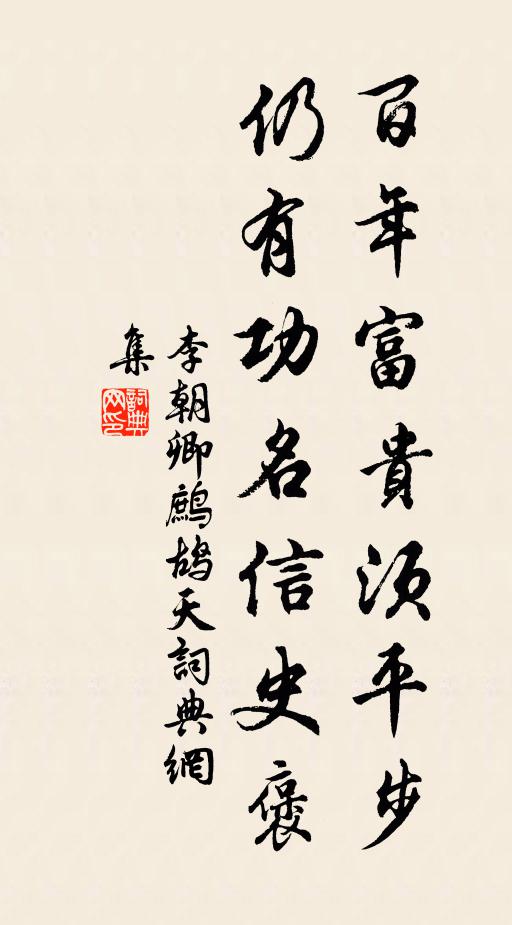 百年富貴須平步
仍有功名信史褒
李朝卿鷓鴣天詞典網
集
詞典
網印